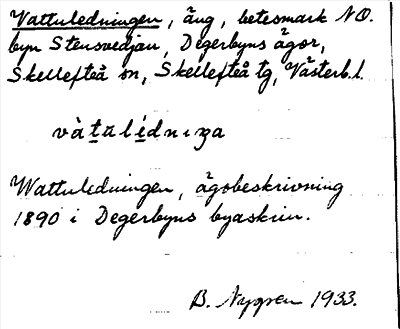 Vattuledningen, äng, betesmark NO.
byn Stensvedjan, Degerbyns ägor,
Skellefteå sn, Skellefteå tg, Västerb.l.
vàtalídnıza
Wattuledningen, ägobeskrivning
1890 i Degerbyns byaskrin.
B. Nygren 1933.